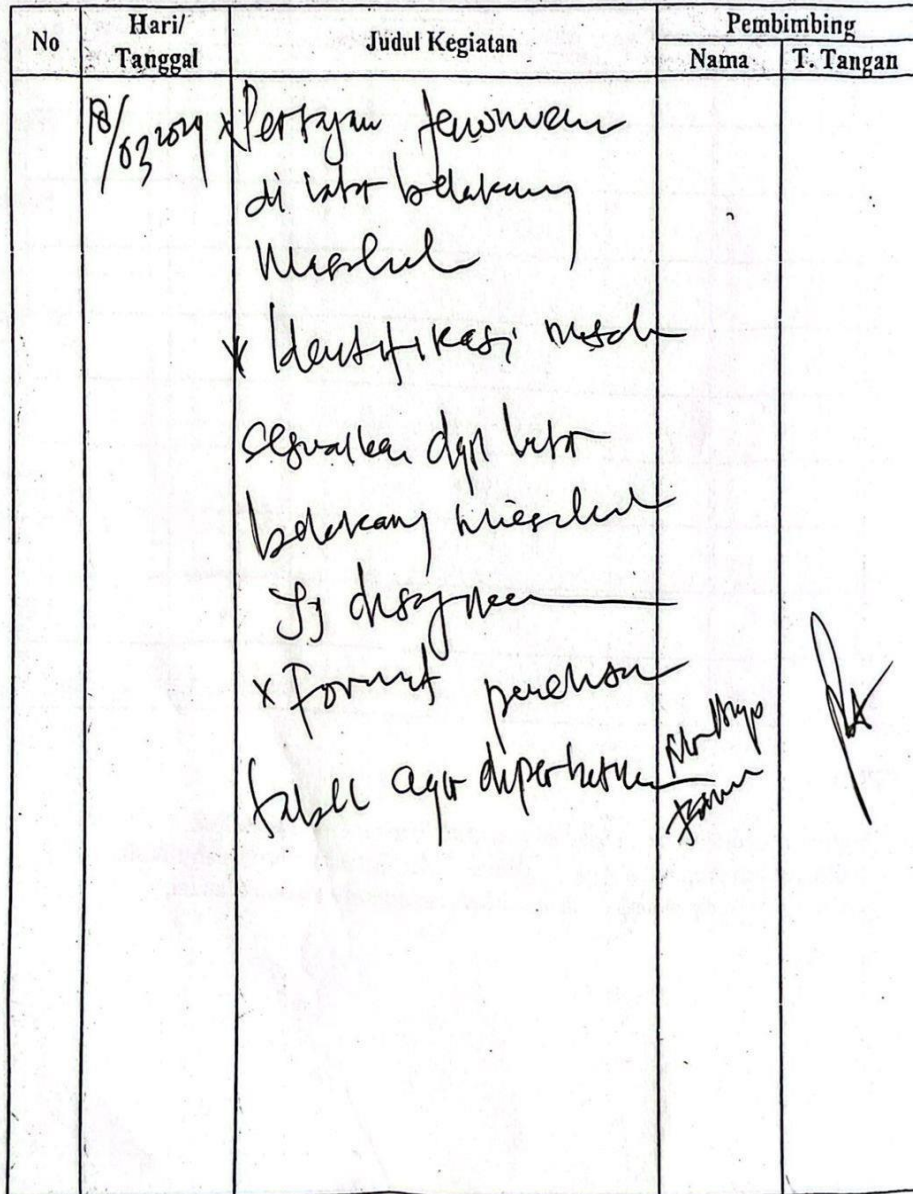 No
Hari/
Tanggal
Judul Kegiatan
Pembimbing
Nama
T. Tangan
18/03 2024 x Pertajam fenomena
di latar belakang
Masalah
x Identifikasi masalah
sesuaikan dgn latar
belakang masalah
yg disajikan
x Format penulisan
tabel agar diperhatikan